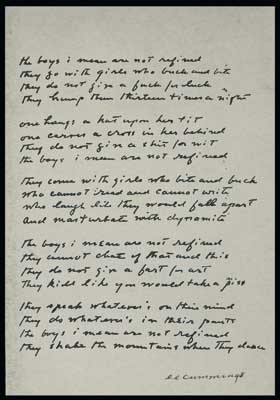 the boys i mean are not refined
they go with girls who buck and bite
they do not give a fuck for luck
they hump them thirteen times a night
one hangs a hat upon her tit
one carves a cross in her behind
they do not give a shit for wit
the boys i mean are not refined
they come with girls who bite and buck
who cannot read and cannot write
who laugh like they would fall apart
and masturbate with dynamite
the boys i mean are not refined
they cannot chat of that and this
they do not give a fart for art
they kill like you would take a piss
they speak whatever's on their mind
they do whatever's in their pants
the boys i mean are not refined
they shake the mountains when they dance
e e cummings